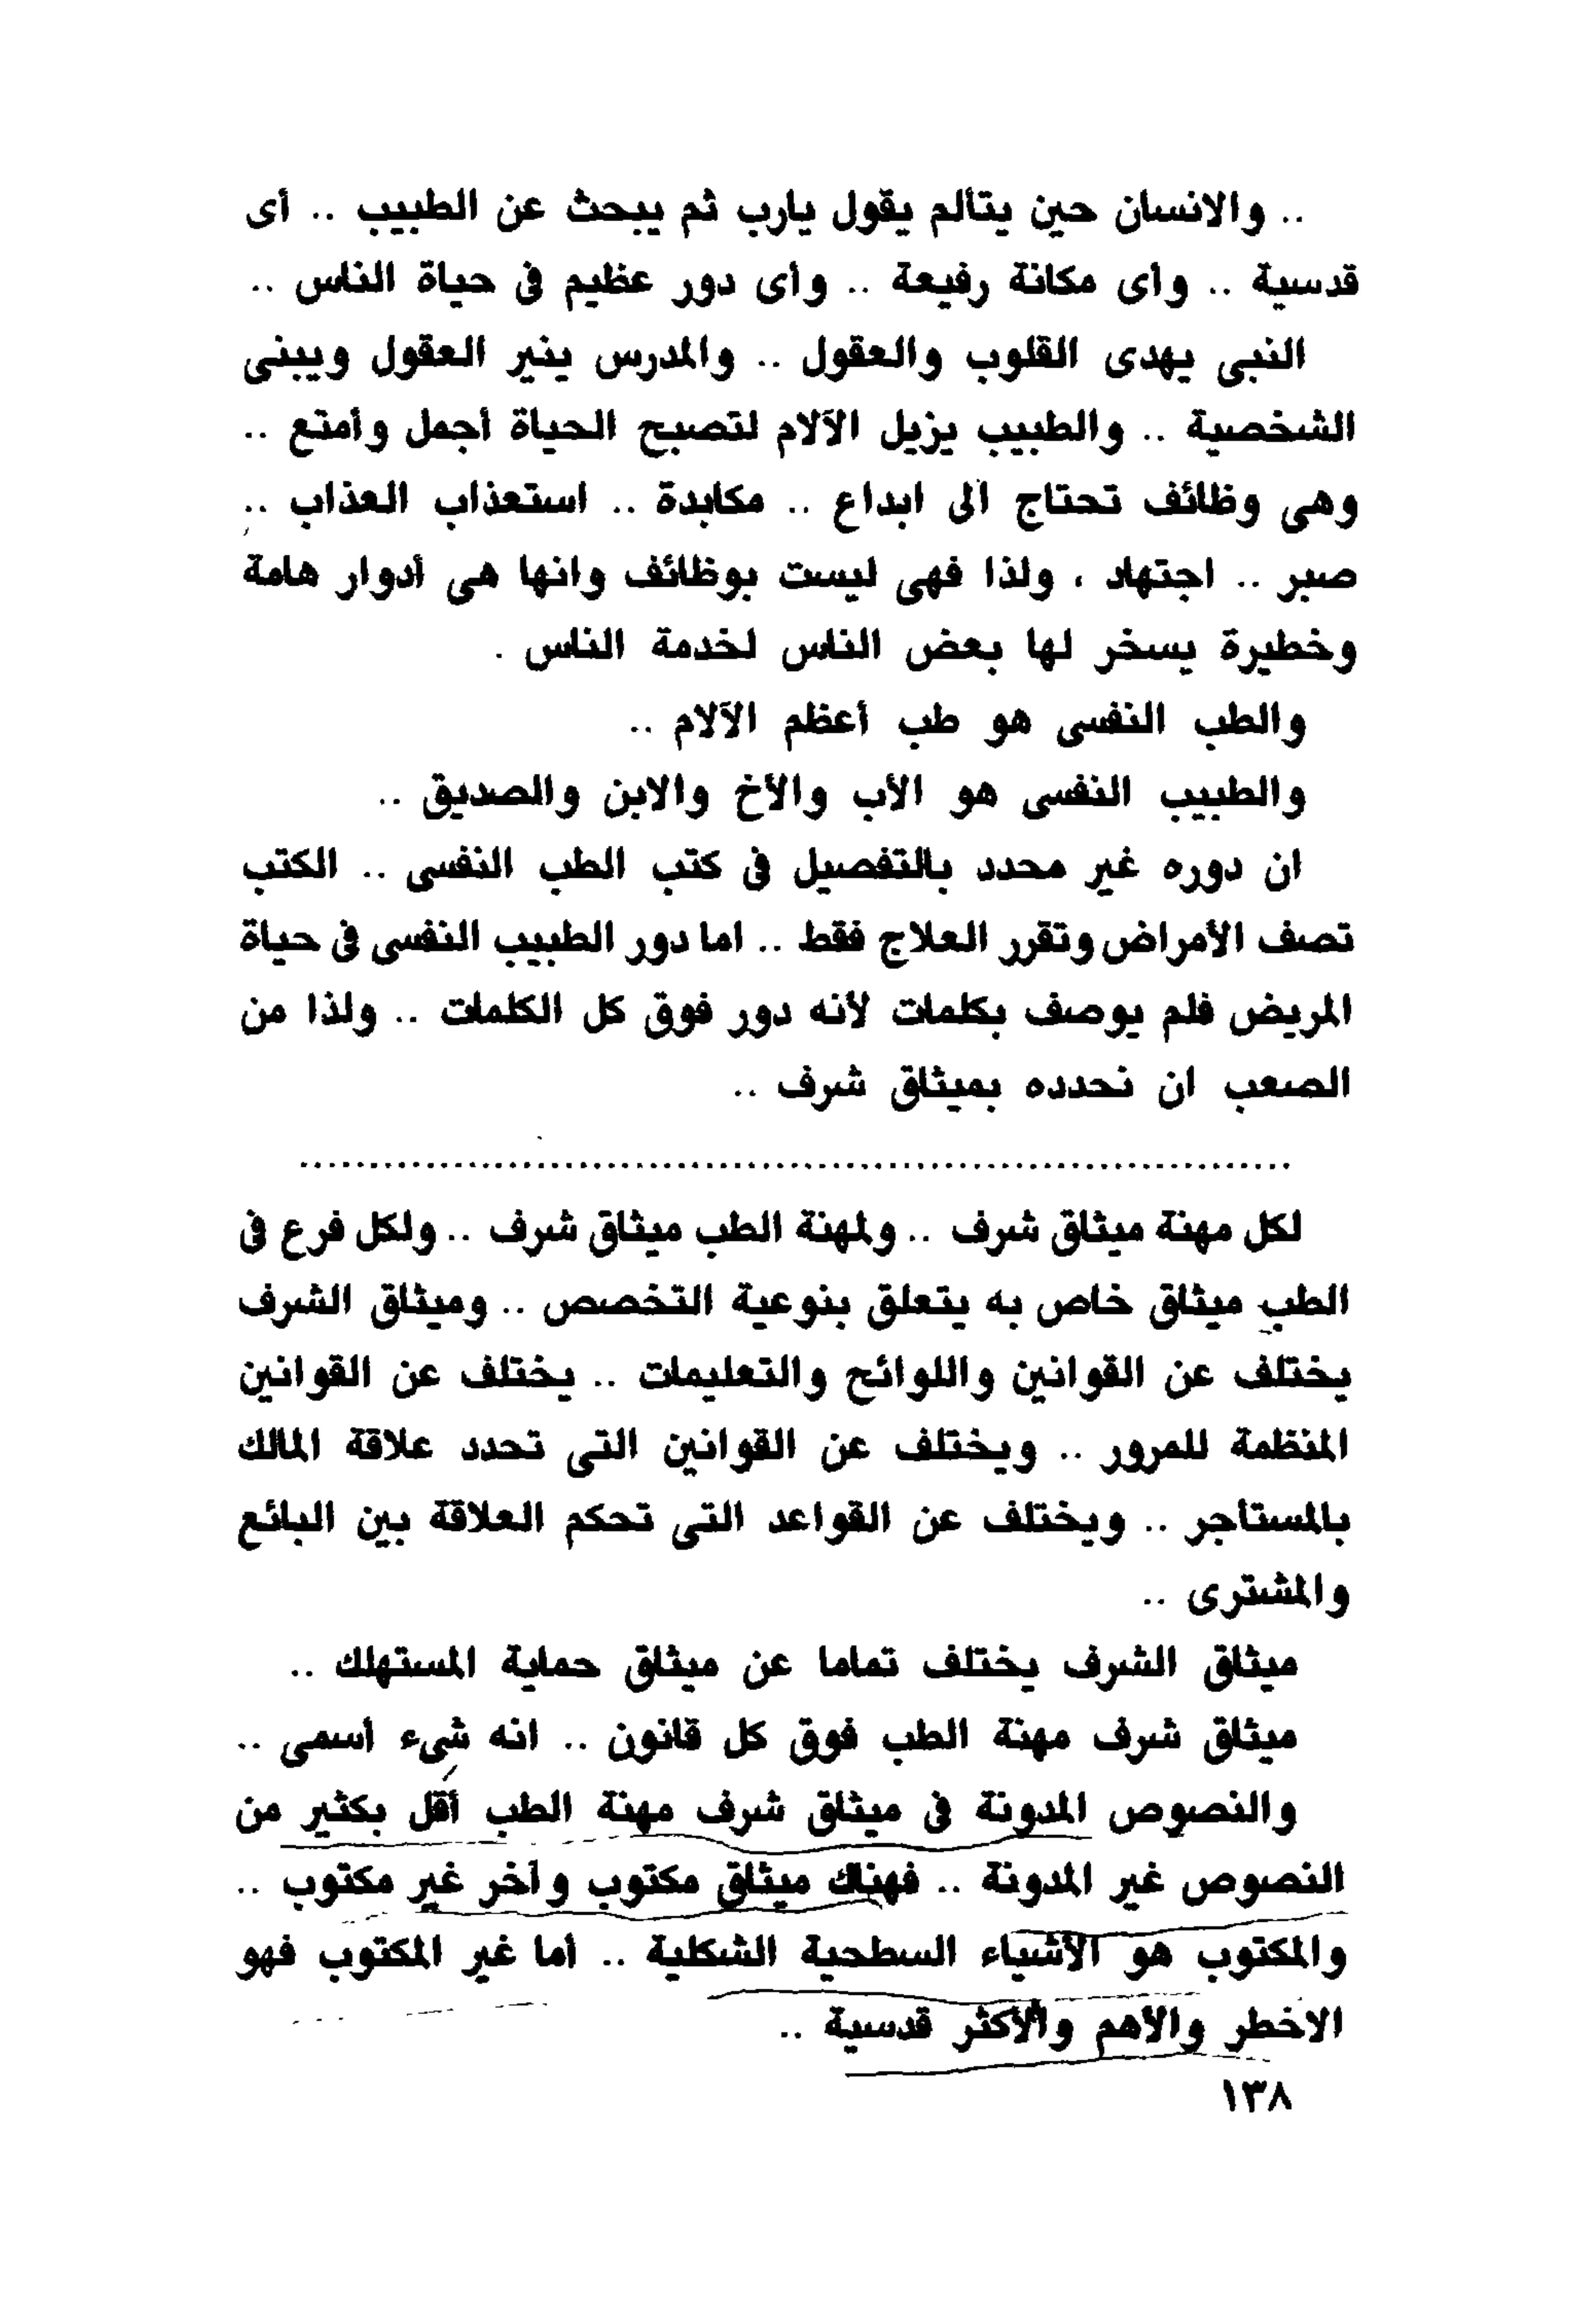 .. والانسان حين يتألم يقول يارب ثم يبحث عن الطبيب .. أى
قدسية .. وأى مكانة رفيعة .. وأى دور عظيم فى حياة الناس ..
النبى يهدى القلوب والعقول .. والمدرس ينير العقول ويبنى
الشخصية .. والطبيب يزيل الآلام لتصبح الحياة أجمل وأمتع ..
وهى وظائف تحتاج الى ابداع .. مكابدة .. استعذاب العذاب ..
صبر .. اجتهاد ، ولذا فهى ليست بوظائف وانها هى أدوار هامة
وخطيرة يسخر لها بعض الناس لخدمة الناس .
والطب النفسى هو طب أعظم الآلام ..
والطبيب النفسى هو الأب والأخ والابن والصديق ..
ان دوره غير محدد بالتفصيل فى كتب الطب النفسى .. الكتب
تصف الأمراض وتقرر العلاج فقط .. اما دور الطبيب النفسى فى حياة
المريض فلم يوصف بكلمات لأنه دور فوق كل الكلمات .. ولذا من
الصعب ان نحدده بميثاق شرف ..
......................................................................
لكل مهنة ميثاق شرف .. ولمهنة الطب ميثاق شرف .. ولكل فرع فى
الطب ميثاق خاص به يتعلق بنوعية التخصص .. وميثاق الشرف
يختلف عن القوانين واللوائح والتعليمات .. يختلف عن القوانين
المنظمة للمرور .. ويختلف عن القوانين التى تحدد علاقة المالك
بالمستأجر .. ويختلف عن القواعد التى تحكم العلاقة بين البائع
والمشترى ..
ميثاق الشرف يختلف تماما عن ميثاق حماية المستهلك ..
ميثاق شرف مهنة الطب فوق كل قانون .. انه شىء أسمى ..
والنصوص المدونة فى ميثاق شرف مهنة الطب أقل بكثير من
النصوص غير المدونة .. فهناك ميثاق مكتوب وآخر غير مكتوب ..
والمكتوب هو الأشياء السطحية الشكلية .. أما غير المكتوب فهو
الاخطر والأهم والأكثر قدسية ..
١٣٨